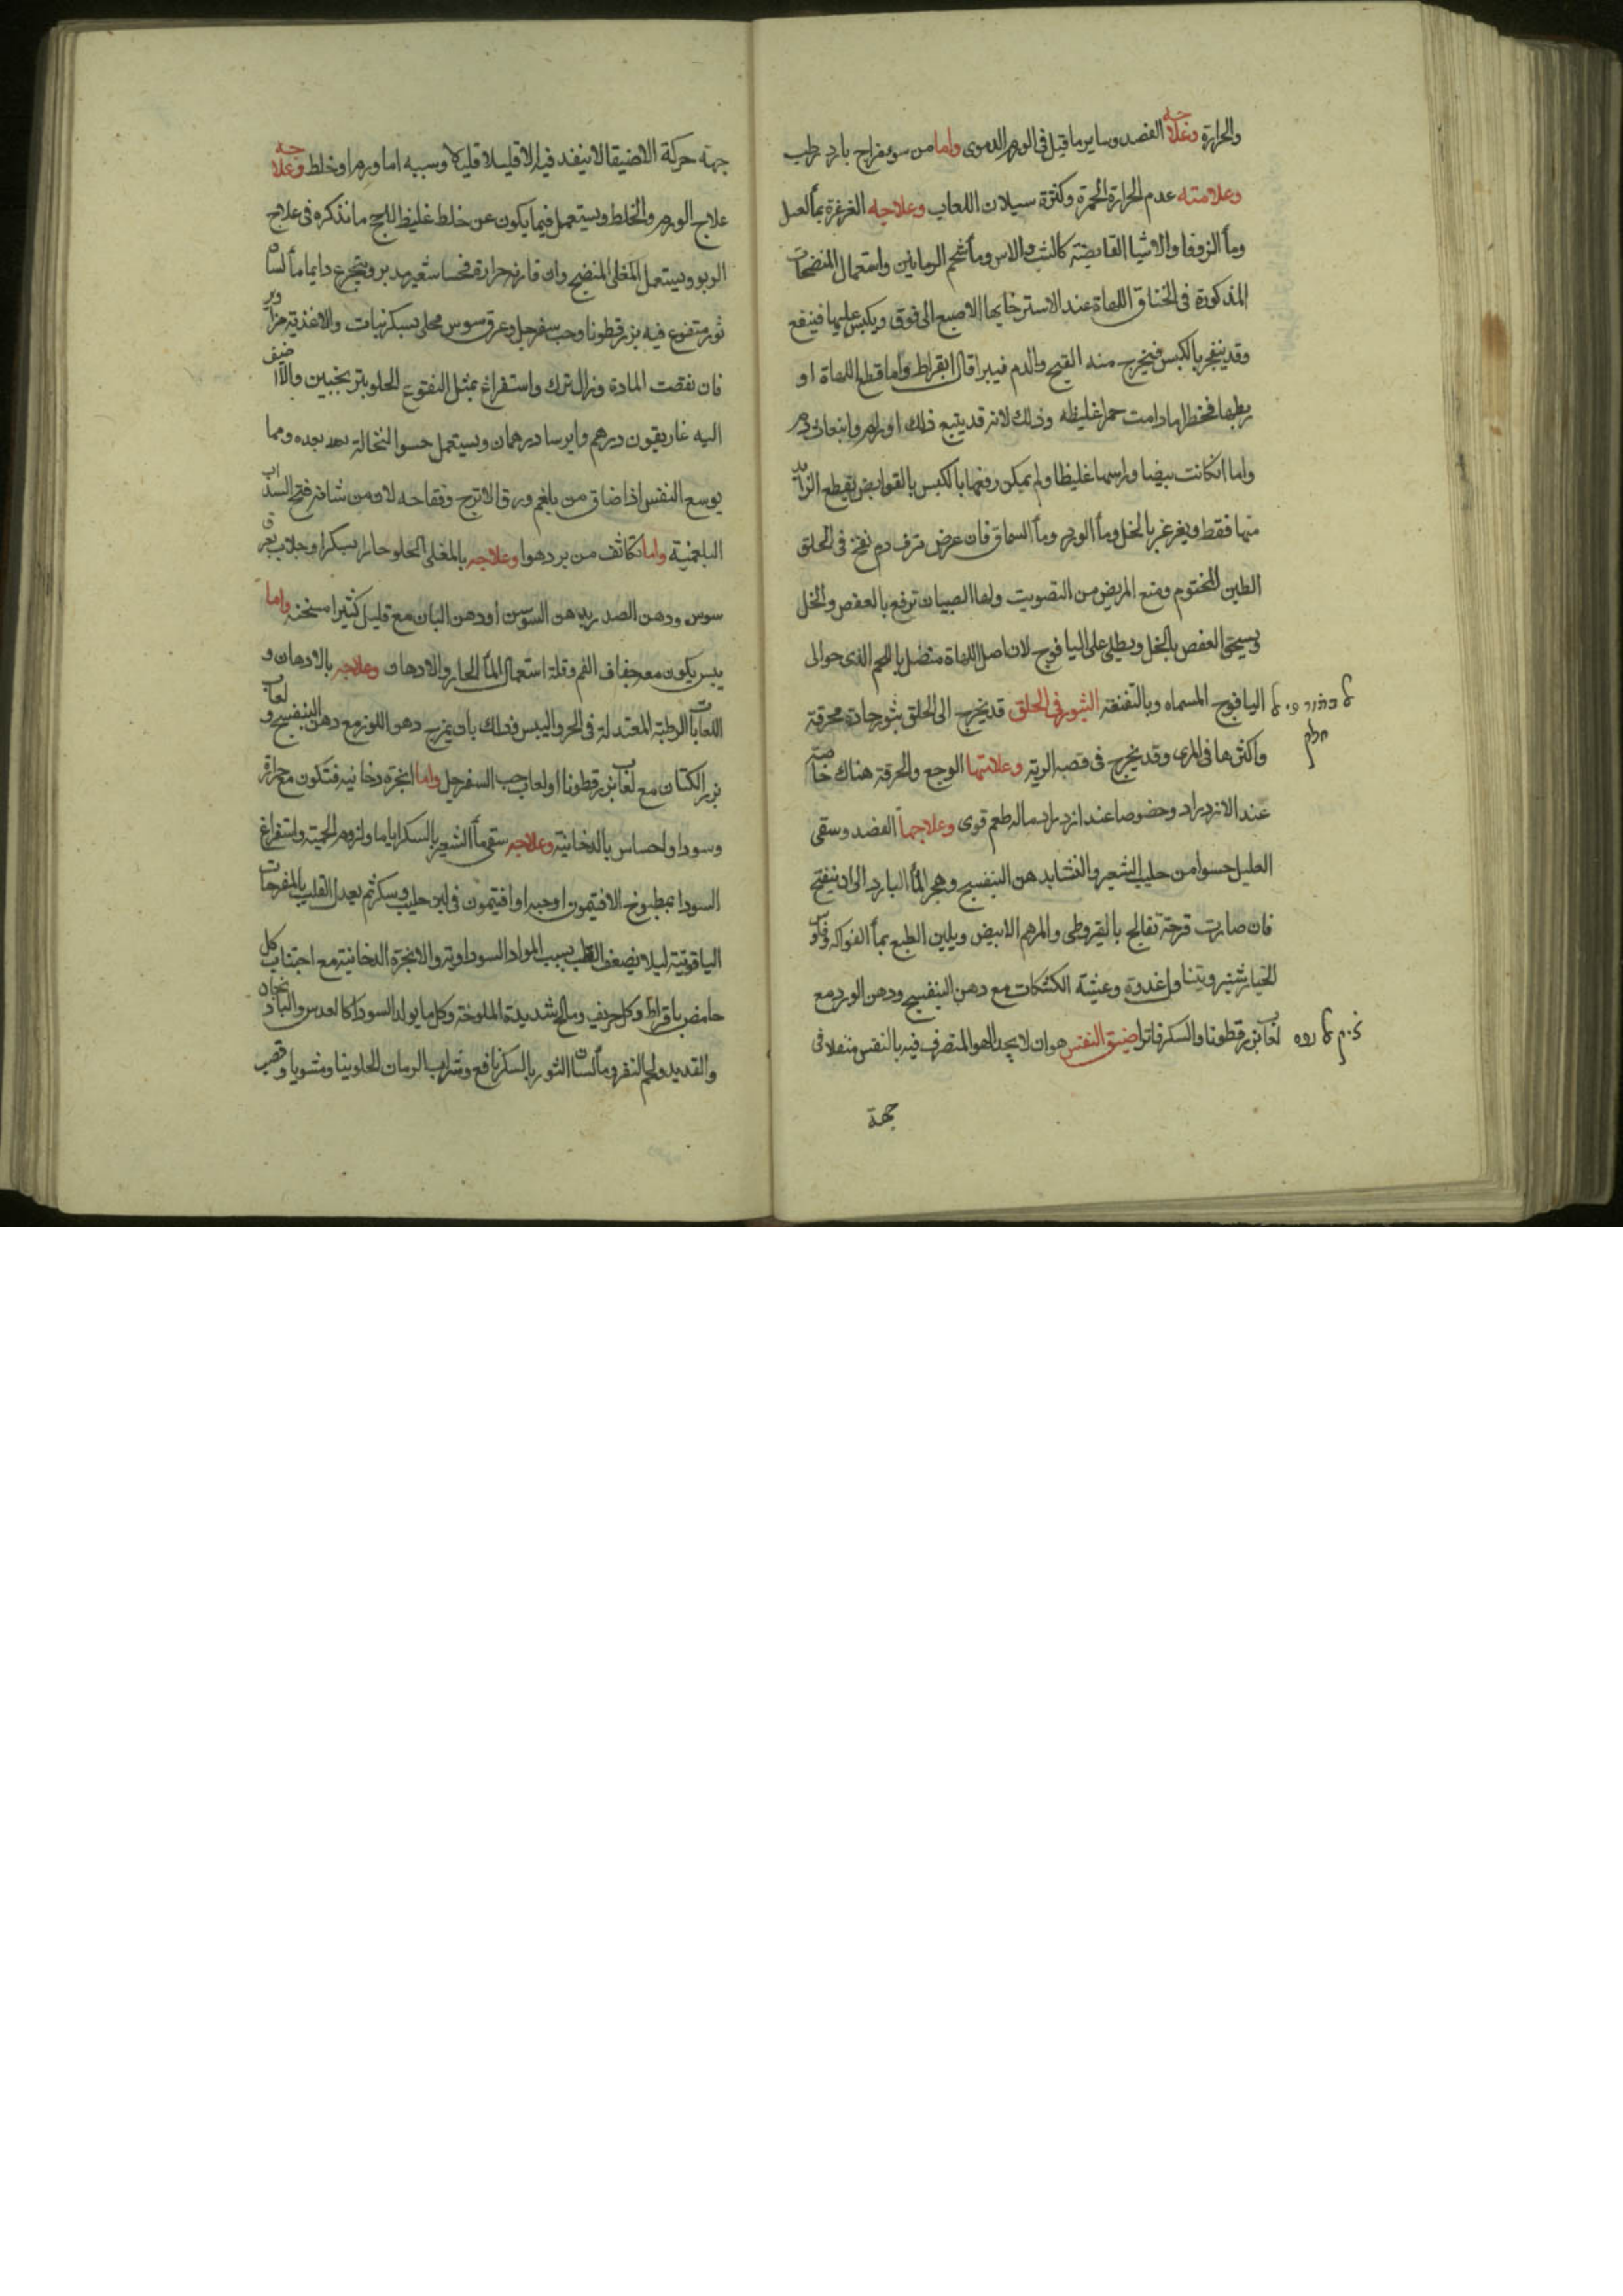 والحرارة وعلاجه الفصد وساير ما قيل فى الورم الدموى واما من سو مزاج بارد رطب
وعلامته عدم الحرارة الحمرة وكثرة سيلان اللعاب وعلاجه الغرغرة بمأ العسل
ومأ الزوفا والاشيا القابضة كالشب والاس ومأ شحم الرمانين واستعمال المنضجات
المذكورة فى الخناق اللهاة عند الاسترخايها الاصبع الى فوق ويكبس عليها فينفع
وقد ينفجر بالكبس فيخرج منه القيح والدم فيبرا قال ابقراط واما قطع اللهاة او
ربطها فخطر لها دامت حمرا غليظه وذلك لانه قد يتبع ذلك اورام وانبعاث دم
واما انكانت بيضا وراسها غليظا ولم يمكن رفعها بالكبس بالقوابض يقطع الزايد
منها فقط ويغرغر بالخل ومأ الورد ومأ السماق فان عرض نزف دم نفخ فى الحلق
الطين المختوم ومنع المريض من التصويت ولها الصبيان ترفع بالعفص والخل
ويسحق العفص بالخل ويطلى على اليافوخ لان اصل اللهاة متصل باللحم الذى حوالى
اليافوخ المسماه وبالنغنغه البثور فى الحلق قد يخرج الى الحلق بثور حادة محرقة
واكثرها فى المرى وقد يخرج فى قصبه الريه وعلامتها الوجع والحرقة هناك خاصة
عند الازدراد وخصوصا عند ازدراد ماله طعم قوى وعلاجها الفصد وسقى
العليل حسوا من حليب الشعير والنشا بدهن البنفسج وهجر المأ البارد الى ان ينفتح
فان صارت قرحة تعالج بالقيروطى والمرهم الابيض ويلين الطبع بمأ الفواكه وفلوس
الخيار شنبر ويتناول غدوة وعشية الكشكات مع دهن البنفسج ودهن الورد مع
لعاب بزر قطونا والسكر فاترا ضيق النفس هو ان لا يجد الهوا المتصرف فيه بالنفس منفذا فى
جهة
جهة حركة الا ضيقا لا ينفد فيه الا قليلا قليلا وسببه اما ورم او خلط وعلاجه
علاج الورم والخلط ويستعمل فيما يكون عن خلط غليظ للحج ما نذكره فى علاج
الربو ويستعمل المغلى المنضج وان قارنه حرارة فحسا شعير مدبر ويتجرع دايما مأ لسان
ثور منقوع فيه بزر قطونا وحب سفرجل وعرق سوس محلى بسكر نبات والاغذية مزاوير
فان نقصت المادة وزال ترك واستفراغ بمثل النقوع الحلو بترنجبين والا اضيف
اليه غاريقون درهم وايرسا درهمان ويستعمل حسوا النخالة بعد بعده ومما
يوسع النفس اذا ضاق من بلغم ورق الاترج وفقاحه لان من شانه فتح السداب
البلغمية واما تكاثف من برد هوا وعلاجه بالمغلى الحلو حارا بسكر او جلاب بعرق
سوس ودهن الصدر بدهن السوسن او دهن البان مع قليل كثيرا مسخنه واما
يبس يكون معه جفاف الفم وقلة استعمال المأ الحار والادهان وعلاجه بالادهان و
اللعابات الرطبة المعتدلة فى الحر واليبس فذلك بان يمزج دهن اللوز مع دهن البنفسج ولعاب
بزر الكتان مع لعاب بزر قطونا او لعاب حب السفرجل واما ابخرة دخانيه فتكون مع حرارة
وسودا واحساس بالدخانية وعلاجه سقى مأ الشعير بالسكر اياما ولزوم الحمية واستفراغ
السودا بمطبوخ الافتيمون او حبه او افتيمون فى لبن حليب وسكر ثم يعدل القلب بالمفرحات
الياقوتية ليلا يضعف القلب بسبب المواد السوداوية والابخرة الدخانية مع اجتناب كل
حامض بافراط وكل حريف ومالح شديدة الملوحة وكل ما يولد السودا كالعدس والباذنجان
والقديد ولحم البقر ومأ لسان الثور بالسكر نافع وشراب الرمان الحلو بينا ومشويا وقصب